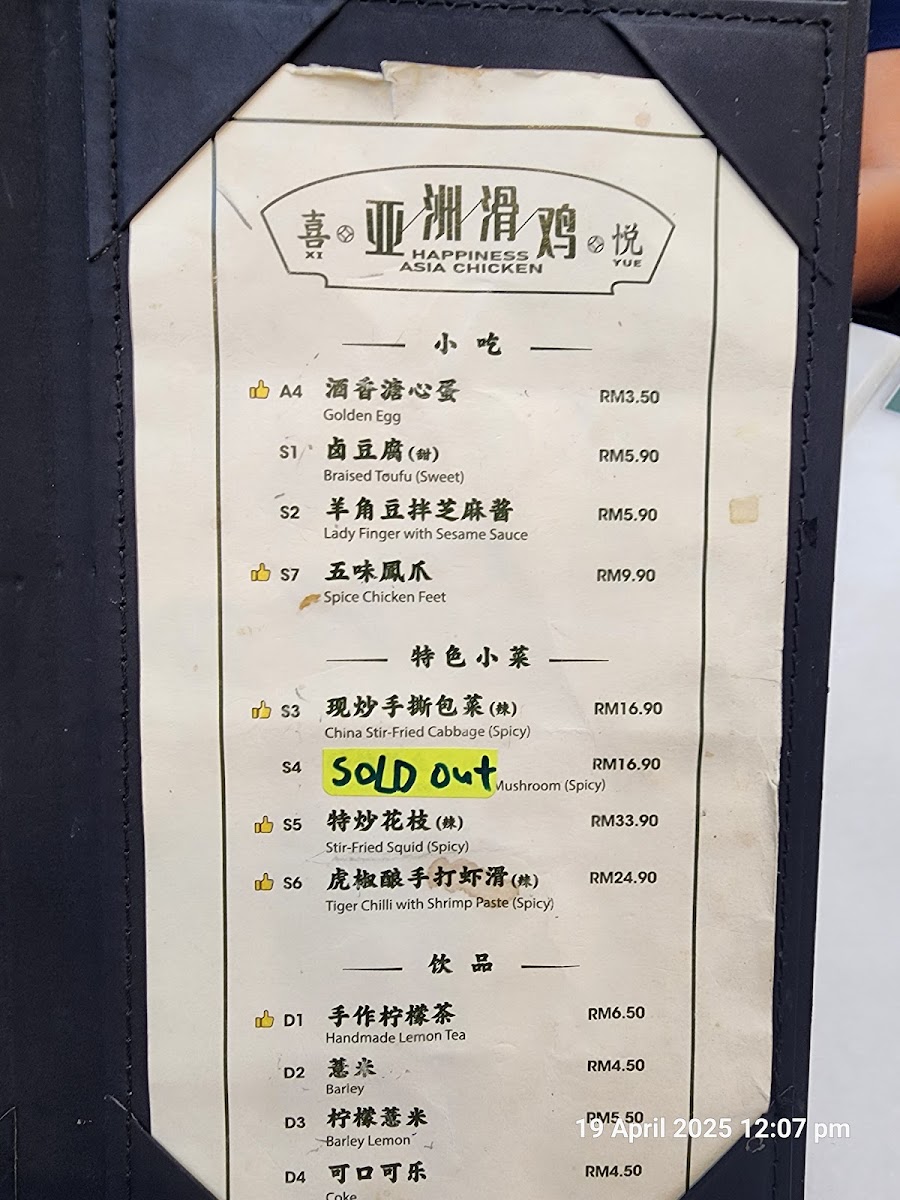 喜 亚洲滑鸡 悦
XI HAPPINESS YUE
ASIA CHICKEN
小吃
A4 酒香溏心蛋 RM3.50
Golden Egg
S1 卤豆腐(甜) RM5.90
Braised Toufu (Sweet)
S2 羊角豆拌芝麻酱 RM5.90
Lady Finger with Sesame Sauce
S7 五味鳳爪 RM9.90
Spice Chicken Feet
特色小菜
S3 现炒手撕包菜(辣) RM16.90
China Stir-Fried Cabbage (Spicy)
S4 SOLD Out RM16.90
Mushroom (Spicy)
S5 特炒花枝(辣) RM33.90
Stir-Fried Squid (Spicy)
S6 虎椒酿手打虾滑(辣) RM24.90
Tiger Chilli with Shrimp Paste (Spicy)
饮品
D1 手作柠檬茶 RM6.50
Handmade Lemon Tea
D2 薏米 RM4.50
Barley
D3 柠檬薏米 RM5.50
Barley Lemon
19 April 2025 12:07 pm
D4 可口可乐 RM4.50
Coke